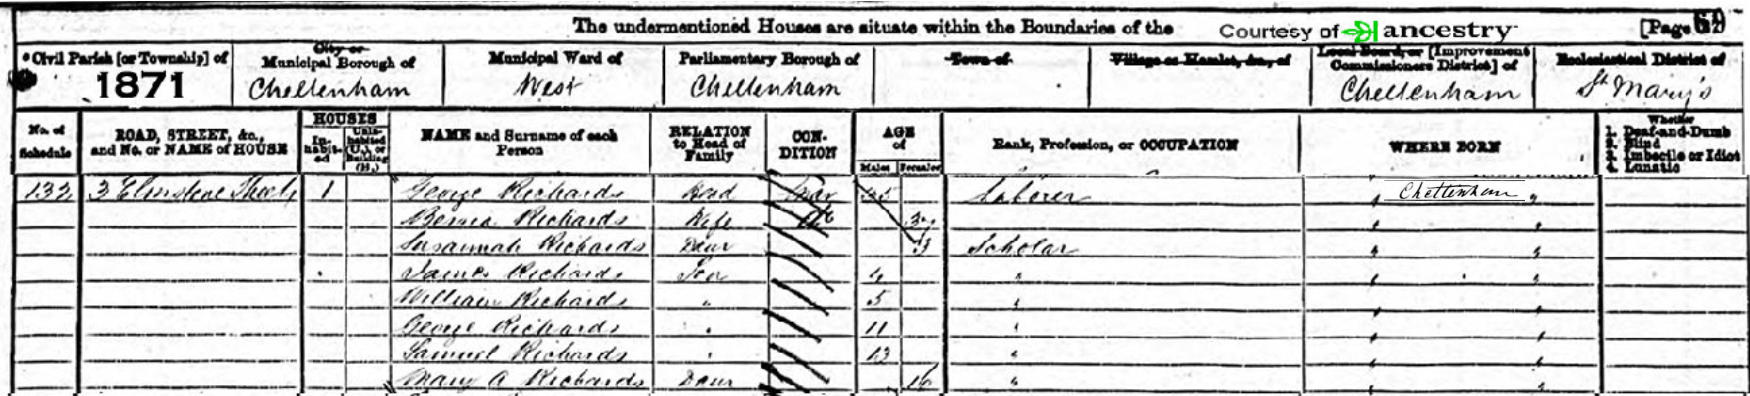 The undermentioned Houses are situate within the Boundaries of the Courtesy of ancestry [Page 69
Civil Parish [or Township] of City or Municipal Borough of Municipal Ward of Parliamentary Borough of Town of Village or Hamlet, &c., of Local Board, or [Improvement Commissioners District] of Ecclesiastical District of
1871 Cheltenham West Cheltenham Cheltenham St Mary's
No. of Schedule ROAD, STREET, &c., and No. or NAME of HOUSE HOUSES Inhabited Uninhabited (U.), or Building (B.) NAME and Surname of each Person RELATION to Head of Family CONDITION AGE of Males Females Rank, Profession, or OCCUPATION WHERE BORN Whether 1. Deaf-and-Dumb 2. Blind 3. Imbecile or Idiot 4. Lunatic
132 3 1 George Richards Head Mar 35 Laborer " Cheltenham "
Richards Wife " "
Susannah Richards Daur Scholar " "
James Richards Son " " "
William Richards " 5 " " "
George Richards " 11 " " "
Samuel Richards " 13 " " "
Mary A Richards Daur 16 " " "